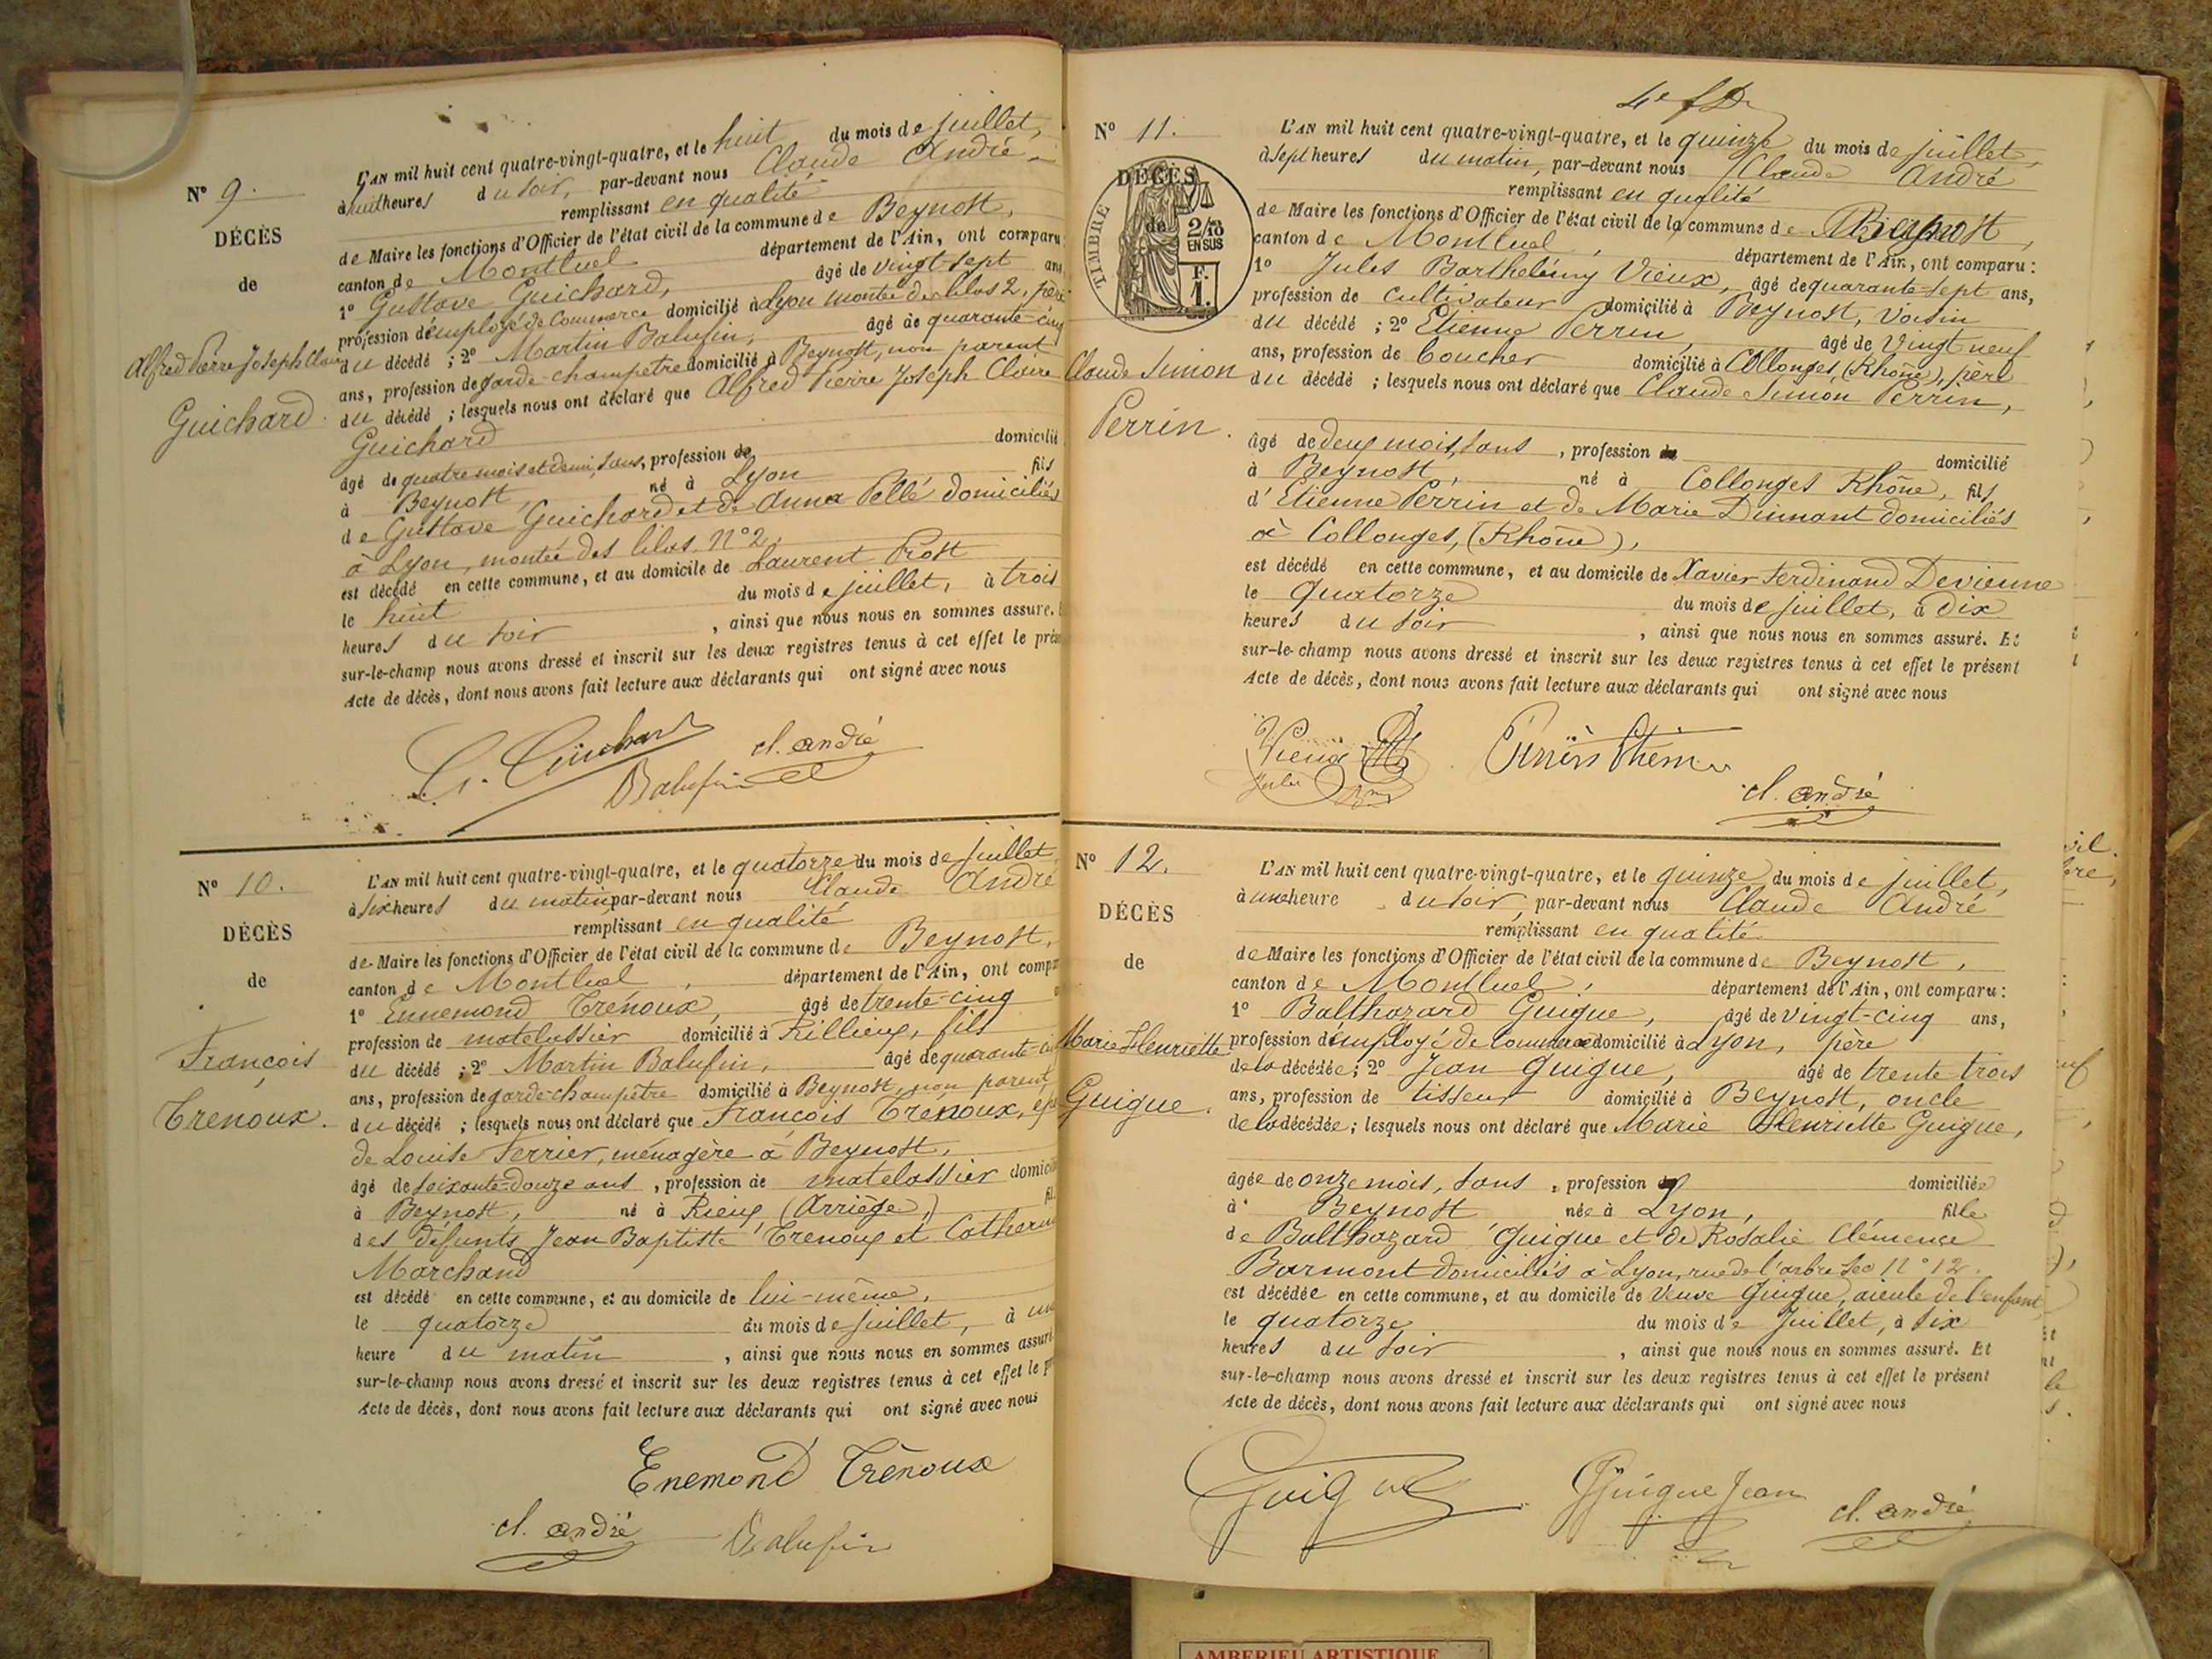 N° 9.
DÉCÈS
de
Alfred Pierre Joseph Claire
Guichard.
L'AN mil huit cent quatre-vingt-quatre, et le huit du mois de juillet,
à huit heures du soir, par-devant nous Claude André
remplissant en qualité
de Maire les fonctions d'Officier de l'état civil de la commune de Beynost,
canton de Montluel département de l'Ain, ont comparu
1° Gustave Guichard, âgé de vingt-sept ans,
profession d'employé de Commerce domicilié à Lyon montée des lilas 2, père
du décédé ; 2° Martin Balufin, âgé de quarante-cinq
ans, profession de garde-champêtre domicilié à Beynost, non parent
du décédé ; lesquels nous ont déclaré que Alfred Pierre Joseph Claire
Guichard
âgé de quatre mois et demi, sans, profession de domicilié
à Beynost, né à Lyon fils
de Gustave Guichard et de Anna Pellé domiciliés
à Lyon, montée des lilas N° 2,
est décédé en cette commune, et au domicile de Laurent Prost
le huit du mois de juillet, à trois
heures du soir , ainsi que nous nous en sommes assuré.
sur-le-champ nous avons dressé et inscrit sur les deux registres tenus à cet effet le prés
Acte de décès, dont nous avons fait lecture aux déclarants qui ont signé avec nous
G. Guichard cl. andré
Balufin
N° 10.
DÉCÈS
de
François
Trenoux.
L'AN mil huit cent quatre-vingt-quatre, et le quatorze du mois de juillet
à six heures du matin par-devant nous Claude André
remplissant en qualité
de Maire les fonctions d'Officier de l'état civil de la commune de Beynost,
canton de Montluel, département de l'Ain, ont compar
1° Ennemond Trenoux, âgé de trente-cinq
profession de matelassier domicilié à Rillieux, fils
du décédé ; 2° Martin Balufin, âgé de quarante-cin
ans, profession de garde-champêtre domicilié à Beynost, non parent
du décédé ; lesquels nous ont déclaré que François Trenoux, ép
de Louise Ferrier, ménagère à Beynost,
âgé de soixante-douze ans , profession de matelassier domicil
à Beynost, né à Rieux (Arriège,) fil
des défunts Jean Baptiste Trenoux et Catherine
Marchand
est décédé en cette commune, et au domicile de lui-même,
le quatorze du mois de juillet, à une
heure du matin , ainsi que nous nous en sommes assuré
sur-le-champ nous avons dressé et inscrit sur les deux registres tenus à cet effet le pr
Acte de décès, dont nous avons fait lecture aux déclarants qui ont signé avec nous
Enemond Trénoux
cl. andré Balufin
N° 11.
TIMBRE
DÉCÈS
de
2/10
EN SUS
F.
1.
Claude Simon
Perrin.
L'AN mil huit cent quatre-vingt-quatre, et le quinze du mois de juillet,
à sept heures du matin, par-devant nous Claude André
remplissant en qualité
de Maire les fonctions d'Officier de l'état civil de la commune de Beynost,
canton de Montluel, département de l'Ain, ont comparu :
1° Jules Barthelémy Vieux, âgé de quarante-sept ans,
profession de Cultivateur domicilié à Beynost, voisin
du décédé ; 2° Etienne Perrin, âgé de Vingt neuf
ans, profession de boucher domicilié à Collonges, (Rhône), père
du décédé ; lesquels nous ont déclaré que Claude Simon Perrin,
âgé de deux mois, sans , profession de domicilié
à Beynost, né à Collonges Rhône, fils
d'Etienne Perrin et de Marie Dinnant domiciliés
à Collonges, (Rhône),
est décédé en cette commune, et au domicile de Xavier Ferdinand Devienne
le quatorze du mois de juillet, à dix
heures du soir , ainsi que nous nous en sommes assuré. Et
sur-le-champ nous avons dressé et inscrit sur les deux registres tenus à cet effet le présent
Acte de décès, dont nous avons fait lecture aux déclarants qui ont signé avec nous
Vieux
Jules
cl. andré
N° 12.
DÉCÈS
de
Marie Henriette
Guigue.
L'AN mil huit cent quatre-vingt-quatre, et le quinze du mois de juillet,
à une heure du soir, par-devant nous Claude André
remplissant en qualité
de Maire les fonctions d'Officier de l'état civil de la commune de Beynost,
canton de Montluel, département de l'Ain, ont comparu :
1° Balthazard Guigue, âgé de vingt-cinq ans,
profession d'employé de Commerce domicilié à Lyon, père
de la décédée ; 2° Jean Guigue, âgé de trente trois
ans, profession de tisseur domicilié à Beynost, oncle
de la décédée ; lesquels nous ont déclaré que Marie Henriette Guigue,
âgée de onze mois, sans , profession domiciliée
à Beynost née à Lyon, fille
de Balthazard Guigue et de Rosalie Clémence
Barmont domiciliés à Lyon, rue de l'arbre sec N° 12.
est décédée en cette commune, et au domicile de Veuve Guigue, aieule de l'enfant,
le quatorze du mois de Juillet, à six
heures du soir , ainsi que nous nous en sommes assuré. Et
sur-le-champ nous avons dressé et inscrit sur les deux registres tenus à cet effet le présent
Acte de décès, dont nous avons fait lecture aux déclarants qui ont signé avec nous
Guigue Guigue Jean cl. andré
AMBERIEU ARTISTIQUE